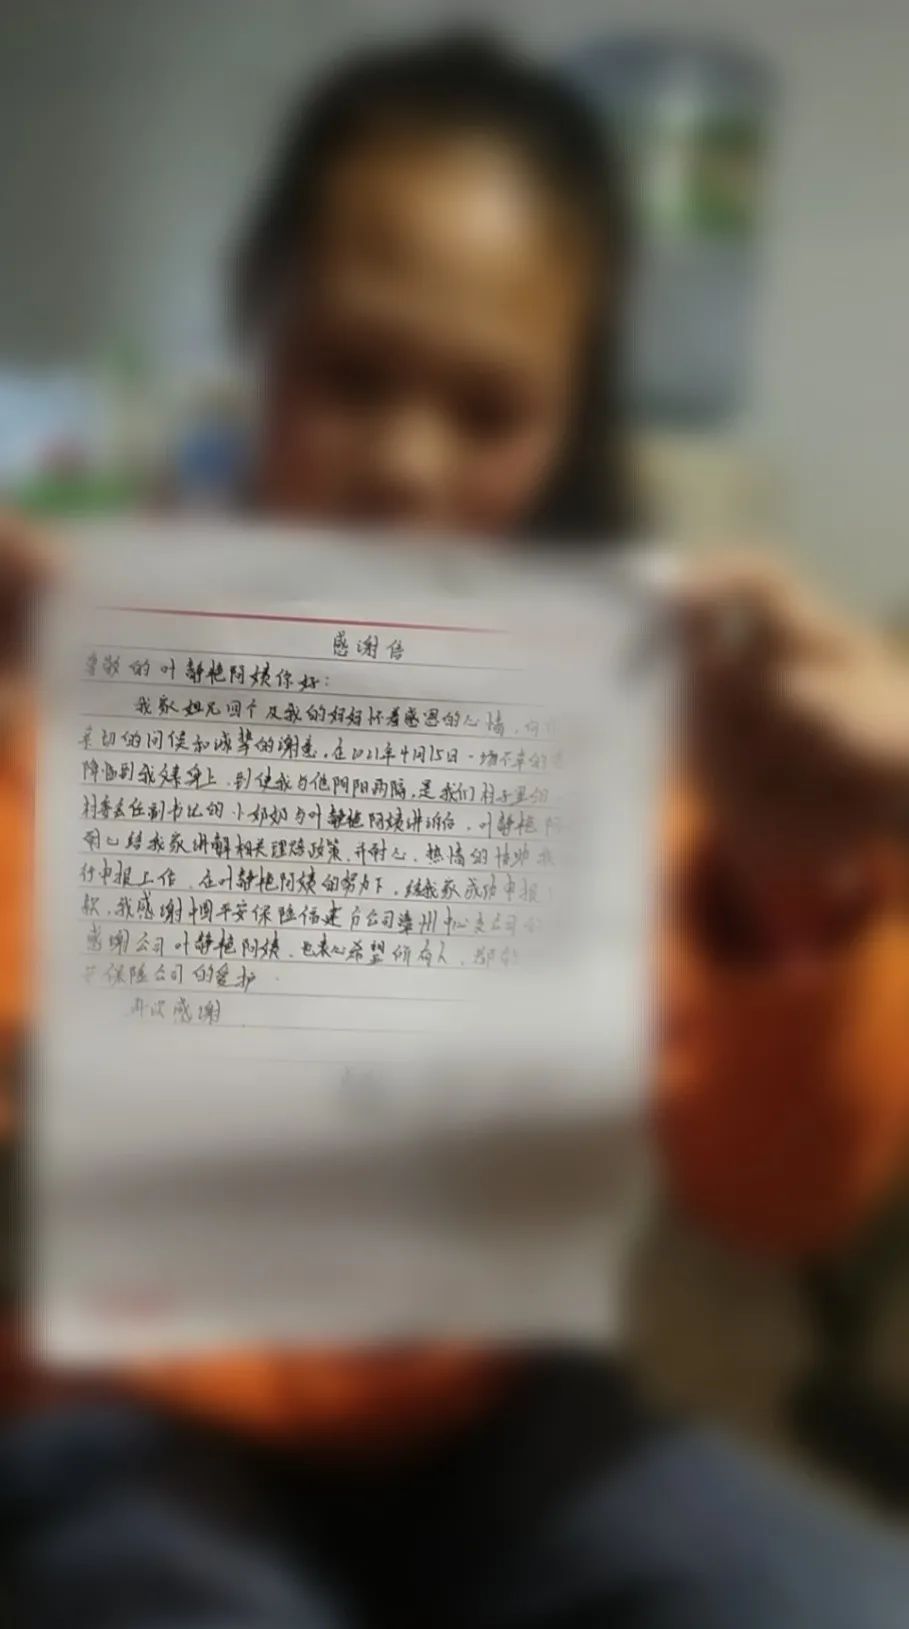 感谢信
尊敬的叶静艳阿姨你好：
我家姐兄四个及我的妈妈怀着感恩的心情，向
亲切的问候和诚挚的谢意，在2021年4月15日一场不幸的
降临到我爸身上，到使我与他阴阳两隔，是我们村子里的
村委会任副书记的小奶奶与叶静艳阿姨讲诉后，叶静艳阿
耐心给我家讲解相关理赔政策，并耐心、热情的协助我
行申报工作，在叶静艳阿姨的努力下，给我家成功申报
款，我感谢中国平安保险福建分公司漳州中心支公司
感谢公司叶静艳阿姨，也衷心希望所有人，都
保险公司的爱护
再次感谢